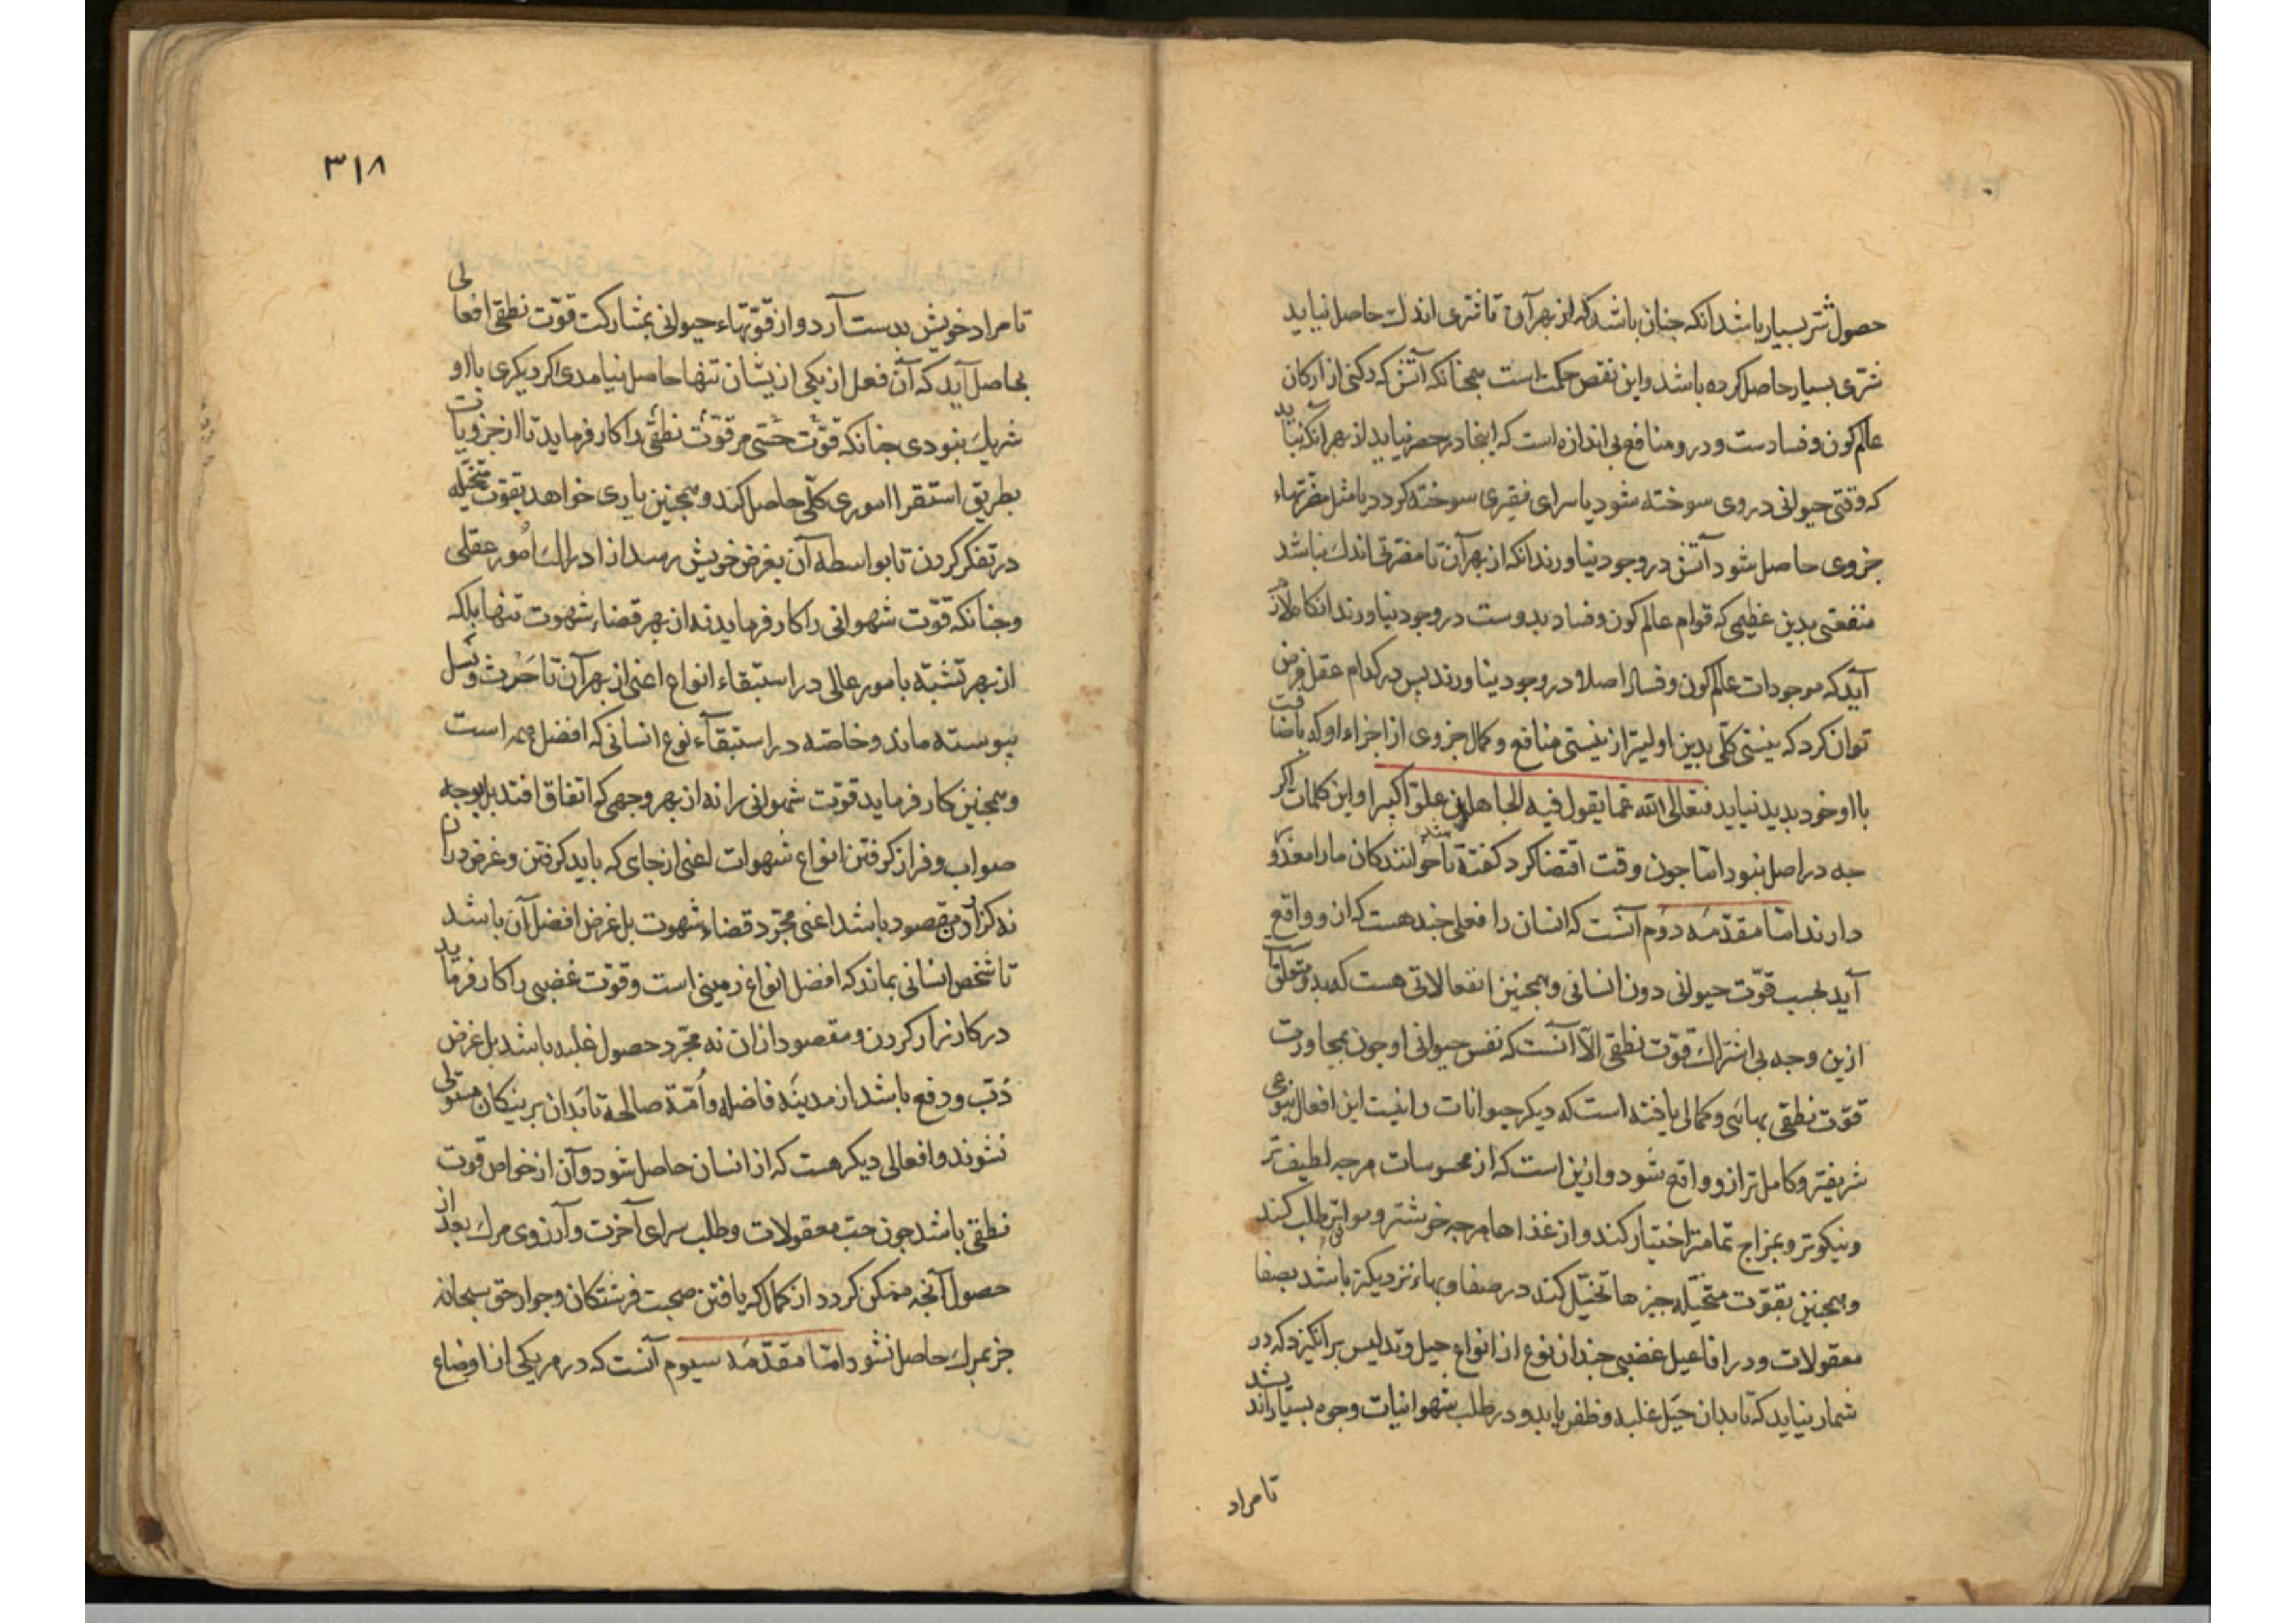 حصول شر بسیار باشد انکه جنان باشد که از بهر آن تا شری اندك حاصل نیاید
شری بسیار حاصل کرده باشد و این نقص حکمت است همجنانکه آتش که رکنی از ارکان
عالم کون و فسادست و درو منافع بی اندازه است که اینجا در حصر نیاید از بهر آنکه نباید
که وقتی حیوانی در وی سوخته شود یا سرای فقیری سوخته کردد یا مثل مضرتهاء
جزوی حاصل شود آتش در وجود نیاورند انکه از بهر آن تا مضرتی اندك نباشد
منفعتی بدین عظیمی که قوام عالم کون و فساد بدوست در وجود نیاورند انکاه لازم
آید که موجودات عالم کون و فساد اصلا در وجود نیاورند بس در کدام عقل فرض
توان کرد که نیستی کلی بدین اولیتر از نیستی منافع و کمال جزوی از اجزاء او که باضافت
با او خود بدید نیاید فتعالی الله عما یقول فیه الجاهلون علوا کبیرا و این کلمات اکر
جه در اصل نبود اما جون وقت اقتضا کرد کفته شد تا خوانندکان ما را معذور
دارند اما مقدمه دوم آنست که انسان را فعلی جند هست که از و واقع
آید بحسب قوت حیوانی دون انسانی و همجنین انفعالاتی هست که بدو متعلق است
ازین وجه بی اشتراك قوت نطقی الا آنست که نفس حیوانی او جون بمجاورت
قوت نطقی بهائی و کمالی یافته است که دیکر حیوانات را نیست این افعال بنوعی
شریفتر و کامل تر از و واقع شود و ازین است که از محسوسات هرجه لطیف تر
و نیکوتر و بمزاج تمامتر اختیار کند و از غذاها هرجه خوشتر و موافق تر طلب کند
و همجنین بقوت متخیله جیزها تخیل کند در صفا و بهاء نزدیك باشد بصفا
معقولات و در افاعیل غضبی جندان نوع از انواع حیل و تدلیس برانکیزد که در
شمار نیاید که تا بدان حیل غلبه و ظفر یابد و در طلب شهوانیات وجوه بسیار اندیشد
تا مراد
٣١٨
تا مراد خویش بدست آرد و از قوتهاء حیوانی بمشارکت قوت نطقی افعالی
بحاصل آید که آن فعل از یکی ازیشان تنها حاصل نیامدی اکر دیکری با او
شریك نبودی جنانکه قوت حسی مر قوت نطقی را کار فرماید تا از جزویات
بطریق استقرا اموری کلی حاصل کند و همجنین یاری خواهد بقوت متخیله
در تفکر کردن تا بواسطه آن بغرض خویش رسد از ادراك امور عقلی
و جنانکه قوت شهوانی را کار فرماید نه از بهر قضاء شهوت تنها بلکه
از بهر تشبه بامور عالی در استبقاء انواع اعنی از بهر آن تا حرث و نسل
بیوسته ماند و خاصه در استبقاء نوع انسانی که افضل همه است
و همجنین کار فرماید قوت شهوانی را نه از بهر وجهی که اتفاق افتد بل بوجه
صواب و فراز کرفتن انواع شهوات اعنی از جای که باید کرفتن و غرض دران
نه کزاردن مقصود باشد اعنی مجرد قضاء شهوت بل غرض افضل آن باشد
تا شخص انسانی بماند که افضل انواع زمینی است و قوت غضبی را کار فرماید
در کارزار کردن و مقصود از ان نه مجرد حصول غلبه باشد بل غرض
ذب و دفع باشد از مدینه فاضله و امة صالحة تا بدان بر نیکان مستولی
نشوند و افعالی دیکر هست که از انسان حاصل شود و آن از خواص قوت
نطقی باشد جون حب معقولات و طلب سرای آخرت و آرزوی مرك بعد از
حصول آنجه ممکن کردد از کمال که یافتن صحبت فرشتکان و جوار حق سبحانه
جز بمرك حاصل نشود اما مقدمه سیوم آنست که در هر یکی از اوضاع